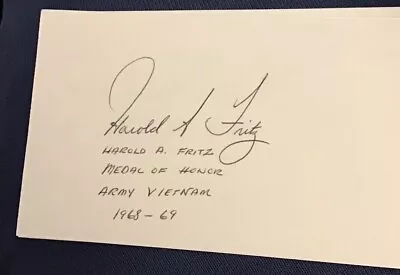 Harold A Fritz
HAROLD A. FRITZ
MEDAL OF HONOR
ARMY VIETNAM
1968-69